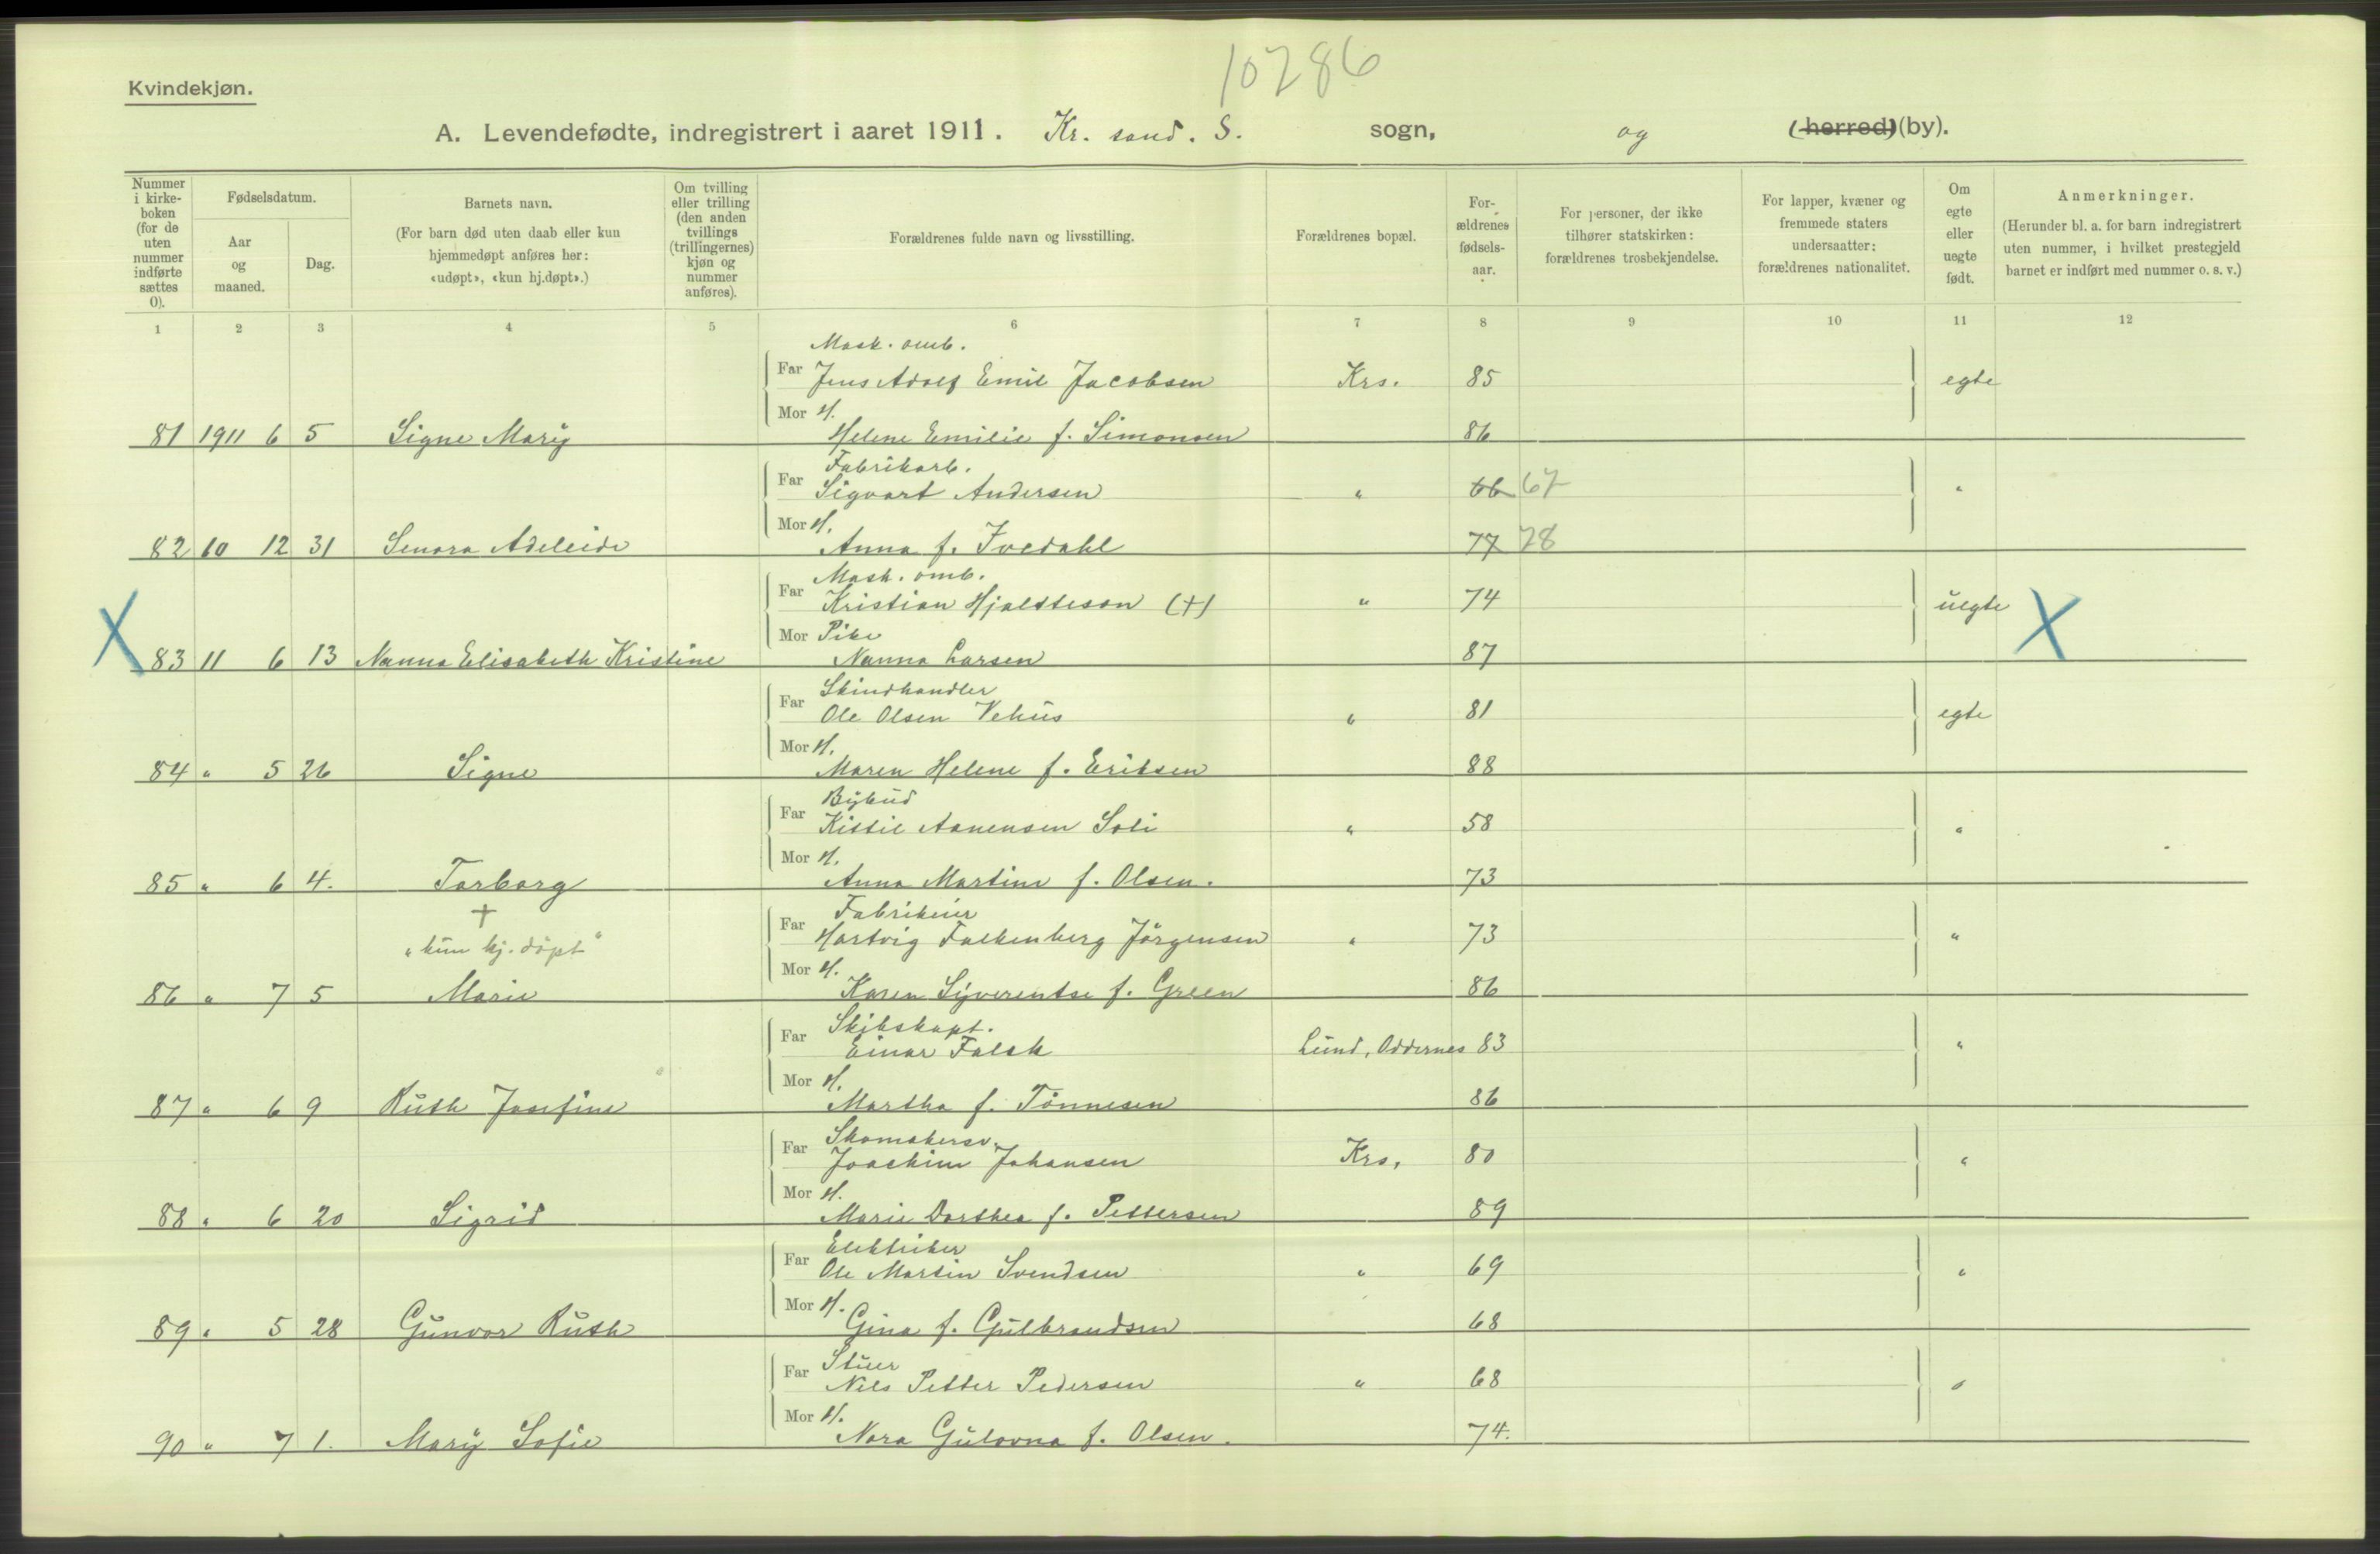 10286
Kvindekjøn.
A. Levendefødte, indregistrert i aaret 1911. Kr. sand. S. sogn, og (herred) (by).
Nummer i kirke-boken (for de uten nummer indførte sættes 0).
Fødselsdatum.
Aar og maaned.
Dag.
Barnets navn.
(For barn død uten daab eller kun hjemmedøpt anføres her: «udøpt», «kun hj.døpt».)
Om tvilling eller trilling (den anden tvillings (trillingernes) kjøn og nummer anføres).
Forældrenes fulde navn og livsstilling.
Forældrenes bopæl.
For-ældrenes fødsels-aar.
For personer, der ikke tilhører statskirken: forældrenes trosbekjendelse.
For lapper, kvæner og fremmede staters undersaatter: forældrenes nationalitet.
Om egte eller uegte født.
Anmerkninger.
(Herunder bl. a. for barn indregistrert uten nummer, i hvilket prestegjeld barnet er indført med nummer o. s. v.)
1 2 3 4 5 6 7 8 9 10 11 12
Mask. omb.
Far Jens Adolf Emil Jacobsen Krs. 85 egte
Mor H.
81 1911 6 5 Signe Marÿ Helene Emilie f. Simonsen 86
Fabrikarb.
Far Sigvart Andersen " 66 67 "
Mor H.
82 10 12 31 Senora Adeleide Anna f. Ivedahl 77 78
Mask. omb.
Far Kristian Hjaltteson (+) " 74 uegte
Mor Pike
X 83 11 6 13 Nanna Elisabeth Kristine Nanna Larsen 87 X
Skindhandler
Far Ole Olsen Vehus " 81 egte
Mor H.
84 " 5 26 Signe Maren Helene f. Eriksen 88
Bybud
Far Kittil Aanensen Soli " 58 "
Mor H.
85 " 6 4. Torborg Anna Martine f. Olsen. 73
+ Fabrikeier
Far Hartvig Falkenberg Jörgensen " 73 "
"kun hj. döpt"
Mor H.
86 " 7 5 Marie Karen Syverentse f. Green 86
Skibskapt.
Far Einar Falck Lund, Oddernes 83 "
Mor H.
87 " 6 9 Ruth Josefine Martha f. Tönnesen 86
Skomakersv.
Far Joachim Johansen Krs. 80 "
Mor H.
88 " 6 20 Sigrid Marie Dorthea f. Pettersen 89
Elektriker
Far Ole Martin Svendsen " 69 "
Mor H.
89 " 5 28 Gunvor Ruth Gina f. Gulbrandsen 68
Stuer
Far Nils Petter Pedersen " 68 "
Mor H.
90 " 7 1. Marÿ Sofie Nora Gulovna f. Olsen. 74.